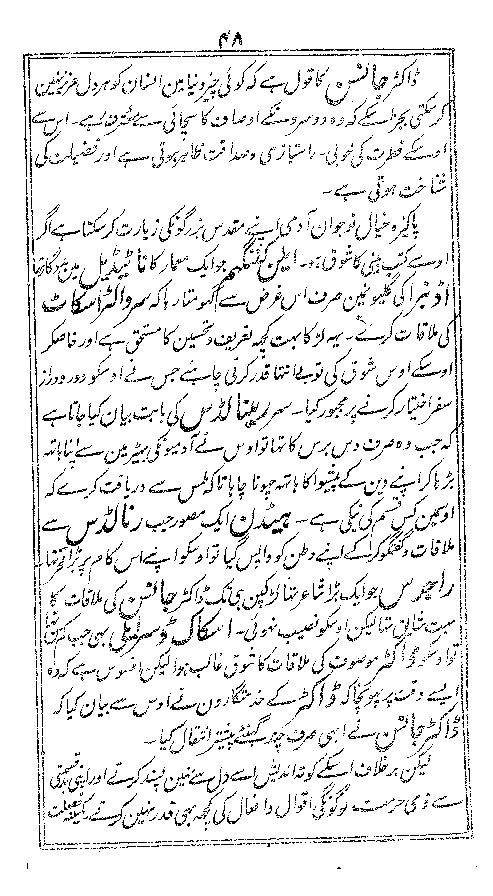 ۴۸
ڈاکٹر جانسن کا قول ہے کہ کوئی چیز دنیا مین انسان کو ہر دل عزیز نہین
کر سکتی بجز اسکے کہ وہ دوسرونکے اوصاف کا سچائی سے معترف رہے۔ اس سے
اوسکے فطرت کی خوبی۔ راستبازی و صداقت ظاہر ہوتی ہے اور فضیلت کی
شناخت ہوتی ہے۔
پاکیزہ خیال نوجوان آدمی اپنے مقدس بزرگونکی زیارت کر سکتا ہے اگر
اوسے کتب بینی کا شوق ہو۔ ایلن کننگہم جو ایک معمار کا تا نیڈیل مین
اڈنبرا کی گلیونمین صرف اس غرض سے گھومتا رہا کہ سر والٹر اسکاٹ
کی ملاقات کرے۔ یہ لڑکا بہت کچھ تعریف و تحسین کا مستحق ہے اور خاصکر
اوسکے اوس شوق کی تو بے انتہا قدر کرنی چاہے جس نے اوسکو دور دراز
سفر اختیار کرنے پر مجبور کیا۔ سر رینالڈس کی بابت بیان کیا جاتا ہے
کہ جب وہ صرف دس برس کا تھا تو اوس نے آدمیونکی بھیڑ مین سے اپنا ہاتھ
بڑہا کر اپنے دین کے پیشوا کا ہاتھ چھونا چاہا تاکہ لمس سے دریافت کرے کہ
اوسمین کس قسم کی نیکی ہے۔ ہیڈن ایک مصور جب رنالڈس سے
ملاقات و گفتگو کر کے اپنے وطن کو واپس گیا تو اوسکو اپنے اس کام پر بڑا فخر تھا۔
راجرس جو ایک بڑا شاعر تھا لڑکپن ہی تک ڈاکٹر جانسن کی ملاقات کا
بہت شایق تھا لیکن اوسکو نصیب نہوئی۔ اسکاک ڈسرائیلی بھی جب کمسن تھا
تو اوسکو ڈاکٹر موصوف کی ملاقات کا شوق غالب ہوا لیکن افسوس ہے کہ وہ
ایسے وقت پر پہونچا کہ ڈاکٹر کے خدمتگارون نے اوس سے بیان کیا کہ
ڈاکٹر جانسن نے ابھی صرف چند گھنٹے پیشتر انتقال کیا۔
لیکن بر خلاف اسکے کوتہ اندیش اسے دل سے نہین پسند کرتے اور اپنی بدقسمتی
سے ذی حرمت لوگونکی اقوال و افعال کی کچھ بھی قدر نہین کرتے